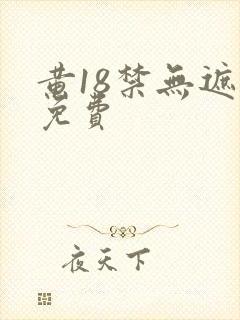 黄18禁無遮
免費
夜天下